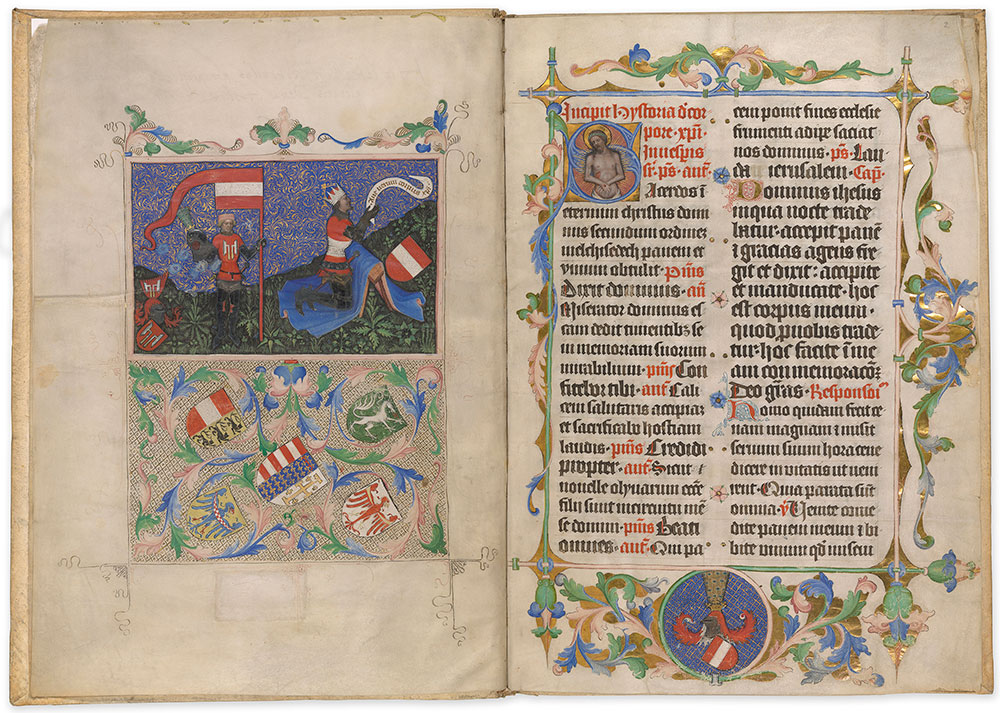 Aue uerum corpus
Incipit hystoria d'cor
pore xpī
In vesp̄is
ps aut̄
Sacerdos ī
eternum christus domi
nus secundum ordinez
melchisedech panem et
vinum obtulit · p̄s
Dixit dominus · an̄
Miserator dominus es
cam dedit timentibꝫ se
in memoriam suorum
mirabilium · p̄s Con
fitebor tibi · an̄t Cali
cem salutaris accipiaz
et sacrificabo hostiam
laudis · p̄s Credidi
propter · an̄t Sicut
nouelle olyuarum ecce
filii sunt in circuitu men
se domini · p̄s Beati
omnes · an̄t Qui pa
cem ponit fines ecclesie
frumenti adipe saciat
nos dominus · p̄s · Lau
da ierusalem · Cap̄
Dominus ihesus
in qua nocte trade
batur · accepit panē
⁊ gracias agens fre
git et dixit : accipite
et manducate · hoc
est corpus meum ·
quod pro uobis trade
tur · hoc facite in me
am conmemoracōem
Deo grās · Responsoī
Homo quidam fecit ce
nam magnam ⁊ misit
seruum suum hora cene
dicere inuitatis ut ueni
rent · Quia parata sūt
omnia · V̄ Uenite come
dite panem meum ⁊ bi
bite uinum qd̄ miscui